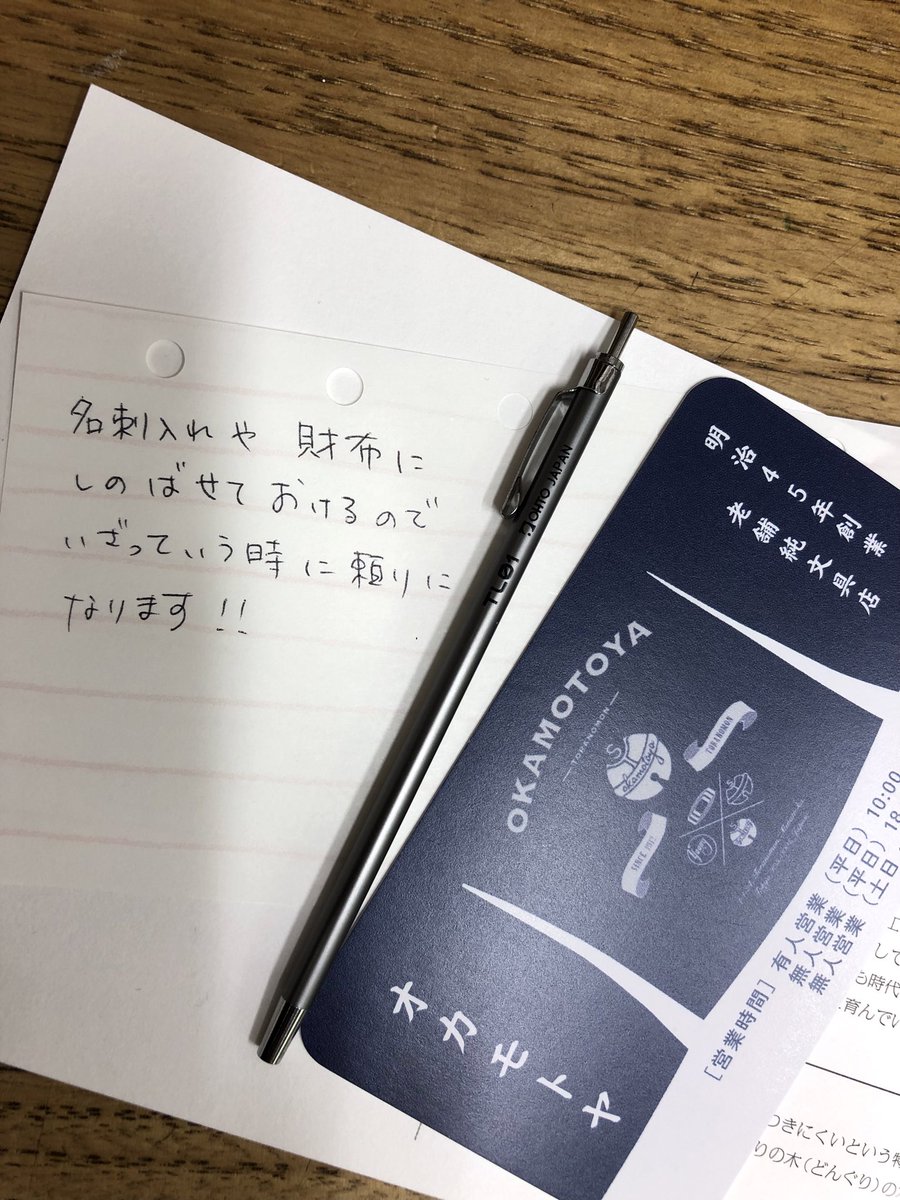 名刺入れや 財布に
しのばせて おけるので
いざっていう時に頼りに
なります!!
TL01 OHTO JAPAN
明治45年創業
老舗純文具店
OKAMOTOYA
TORANOMON
S
okamotoya
TORANOMON
SINCE 1912
オカモトヤ
[営業時間] 有人営業 (平日) 10:00
無人営業 (平日) 18
無人営業 (土日
して
時代
育んでい
つきにくいという特
りの木(どんぐり)の